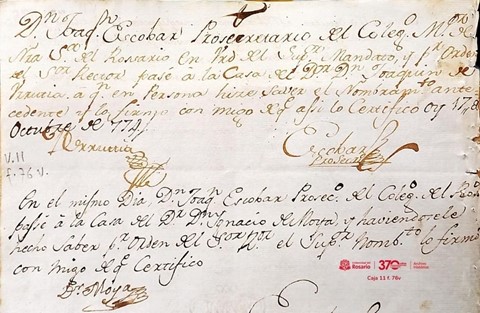 Dn Joaqn Escobar Prosecretario del Colegio Mr de
Nra Sra del Rosario en Vrd del Supr Mandato, y pr Orden
del Sor Rector pase à la Casa del Dor Dn Joaquin de
Vrrutia a qn en Persona hize saver el Nombramto ante-
cedente y lo firmó con migo de qe assi lo Certifico oy
Octubre de 
Vrrutia
Escobar
Prosecro
V. 11
f. 76 v.
En el mismo Dia Dn Joaqn Escobar Prosec.o del Coleg.o del
pase à la Casa del Dr Dn Ignacio de Moya, y haviendole
hecho Saber pr Orden del Sor Ror el Supr Nombto lo firmó
con migo de qe Certifico
Dr Moya
Universidad del
Rosario
370
Archivo
Histórico
Caja 11 f. 76v